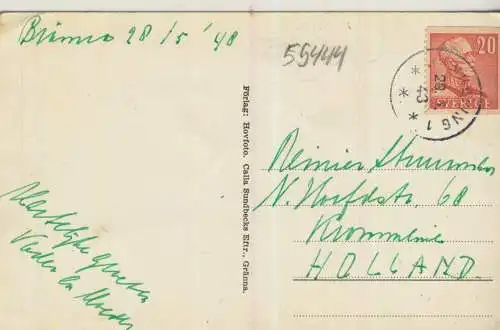 28/5 '48
55444
20
SVERIGE
ING 1
43
Förlag: Hovfoto. Calla Sundbecks Eftr., Gränna.
Reinier
N. Hoofdstr. 68
Krommenie
HOLLAND.
Hartelijke groeten
Vader en Moeder